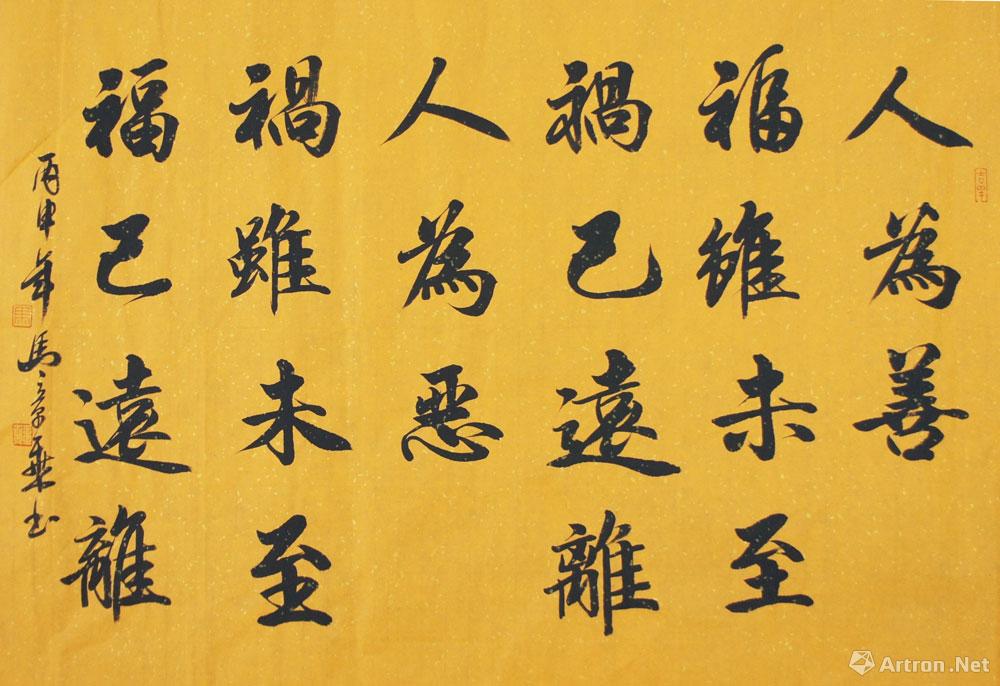 人為善
福雖未至
禍已遠離
人為惡
禍雖未至
福已遠離
丙申年馬
Artron.Net